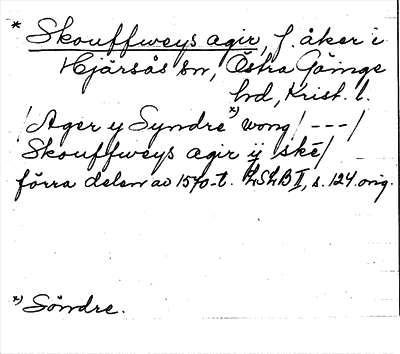 * Skouffweys agir, f. åker i
Hjärsås sn, Östra Göinge
hd, Krist. l.
/Ager y Syndre *) wong/ --- /
Skouffweys agir ÿ skē/
förra delen av 1570-t. LSLB II, s. 124 orig.
*) Söndre.